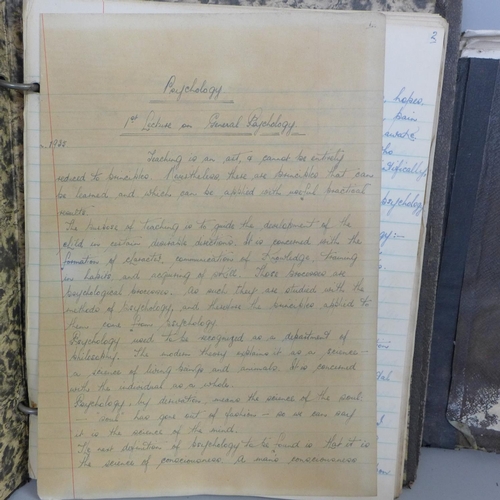 Psychology
1st Lecture on General Psychology.
1932
Teaching is an art, & cannot be entirely
reduced to principles. Nevertheless there are principles that can
be learned and which can be applied with useful practical
results.
The purpose of Teaching is to guide the development of the
child in certain desirable directions. It is concerned with the
formation of character, communications of knowledge, training
in habits, and acquiring of skill. These processes are
psychological processes. As such they are studied with the
methods of psychology, and therefore the principles applied to
them come from psychology.
Psychology used to be recognized as a department of
philosophy. The modern theory esteems it as a science -
a science of living beings and animals. It is concerned
with the individual as a whole.
Psychology by derivation means the science of the soul
- 'soul' has gone out of fashion - so we can say
it is the science of the mind.
The next definition of psychology to be found is that it is
the science of consciousness. A man's consciousness
3
hopes
pain
psychology